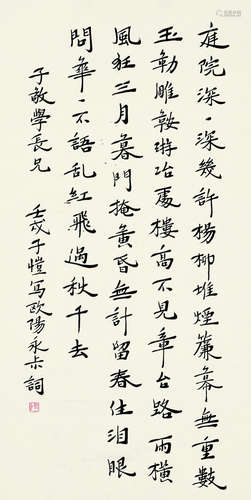 庭院深、深幾許楊柳堆煙簾幕無重數
玉勒雕鞍游冶處樓高不見章台路雨橫
風狂三月暮門掩黃昏無計留春住泪眼
問華、不語亂紅飛過秋千去
子敏學長兄
壬戌子愷寫歐陽永叔詞